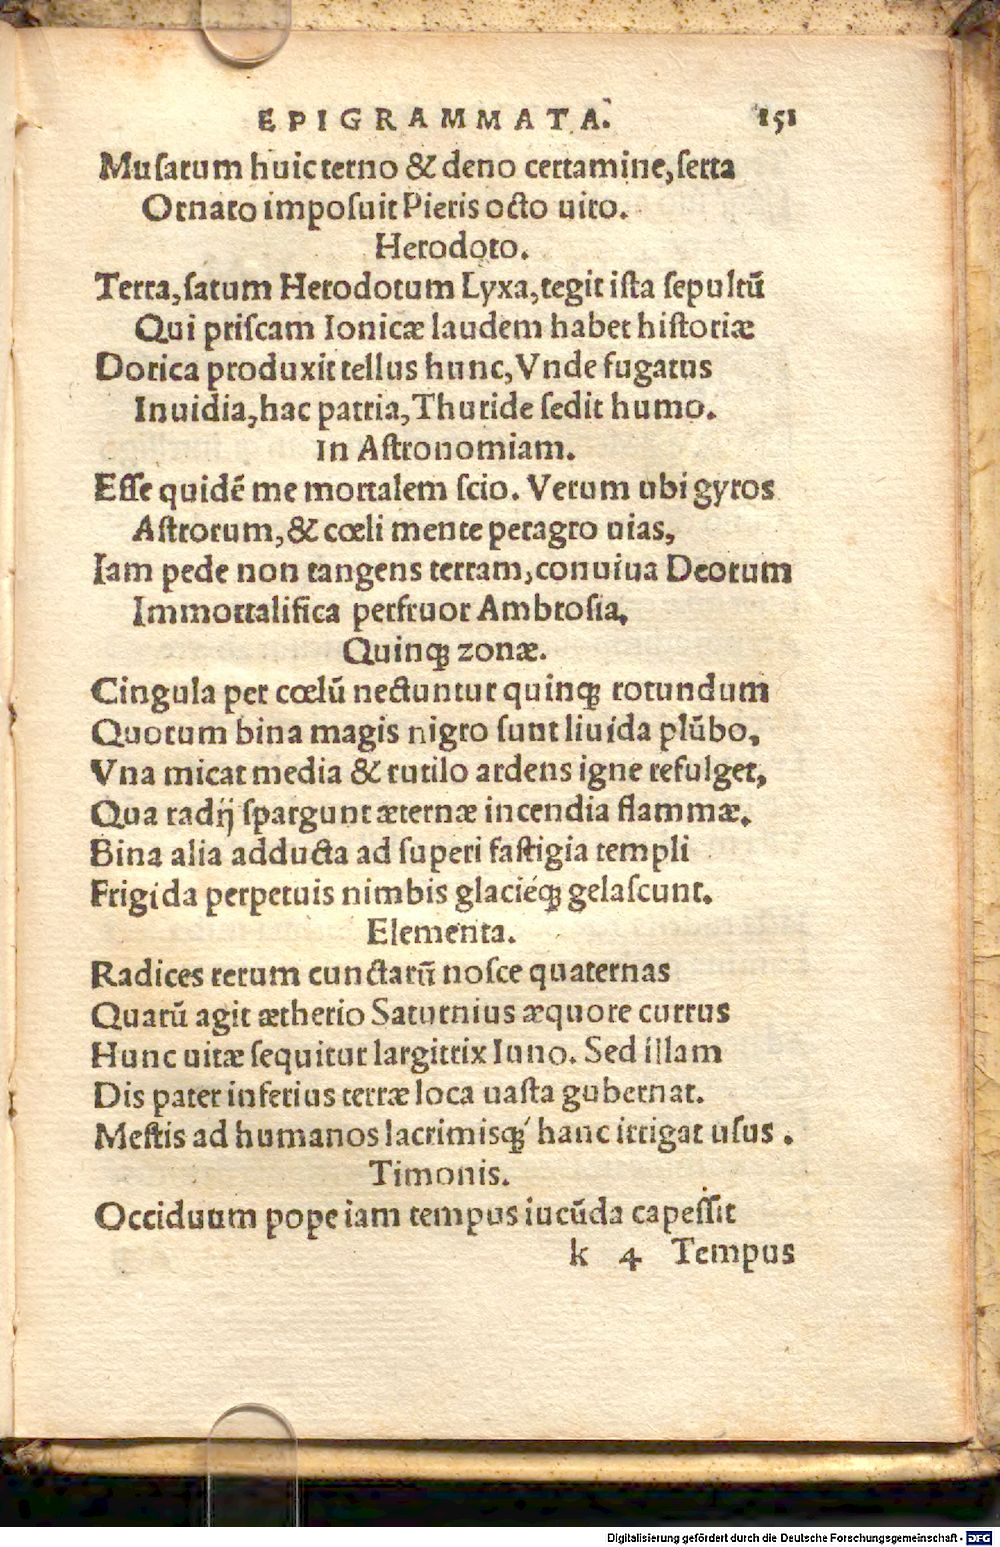 EPIGRAMMATA. 151
Muſarum huic terno & deno certamine, ſerta
Ornato impoſuit Pieris octo uiro.
Herodoto.
Terra, ſatum Herodotum Lyxa, tegit iſta ſepultū
Qui priſcam Ionicæ laudem habet hiſtoriæ
Dorica produxit tellus hunc, Vnde fugatus
Inuidia, hac patria, Thuride ſedit humo.
In Aſtronomiam.
Eſſe quidē me mortalem ſcio. Verum ubi gyros
Aſtrorum, & cœli mente peragro uias,
Iam pede non tangens terram, conuiua Deorum
Immortalifica perfruor Ambroſia.
Quinqꝫ zonæ.
Cingula per cœlū nectuntur quinqꝫ rotundum
Quorum bina magis nigro ſunt liuida plūbo,
Vna micat media & rutilo ardens igne refulget,
Qua radij ſpargunt æternæ incendia flammæ.
Bina alia adducta ad ſuperi faſtigia templi
Frigida perpetuis nimbis glaciéqꝫ gelaſcunt.
Elementa.
Radices rerum cunctarū noſce quaternas
Quarū agit ætherio Saturnius æquore currus
Hunc uitæ ſequitur largitrix Iuno. Sed illam
Dis pater inferius terræ loca uaſta gubernat.
Meſtis ad humanos lacrimisqꝫ́ hanc irrigat uſus.
Timonis.
Occiduum pope iam tempus iucūda capeſſit
k 4 Tempus
Digitalisierung gefördert durch die Deutsche Forschungsgemeinschaft - DFG